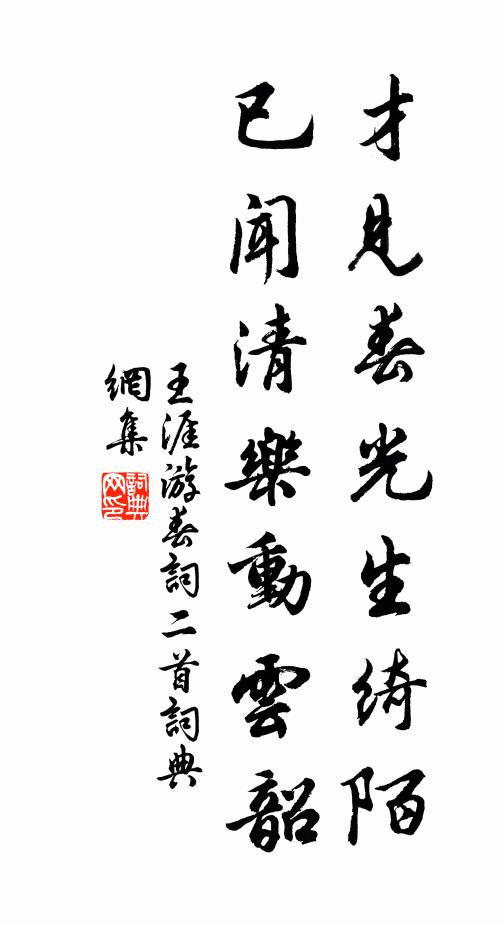 才見春光生綺陌
已聞清樂動雲韶
王涯游春詞二首詞典
網集
詞典網印